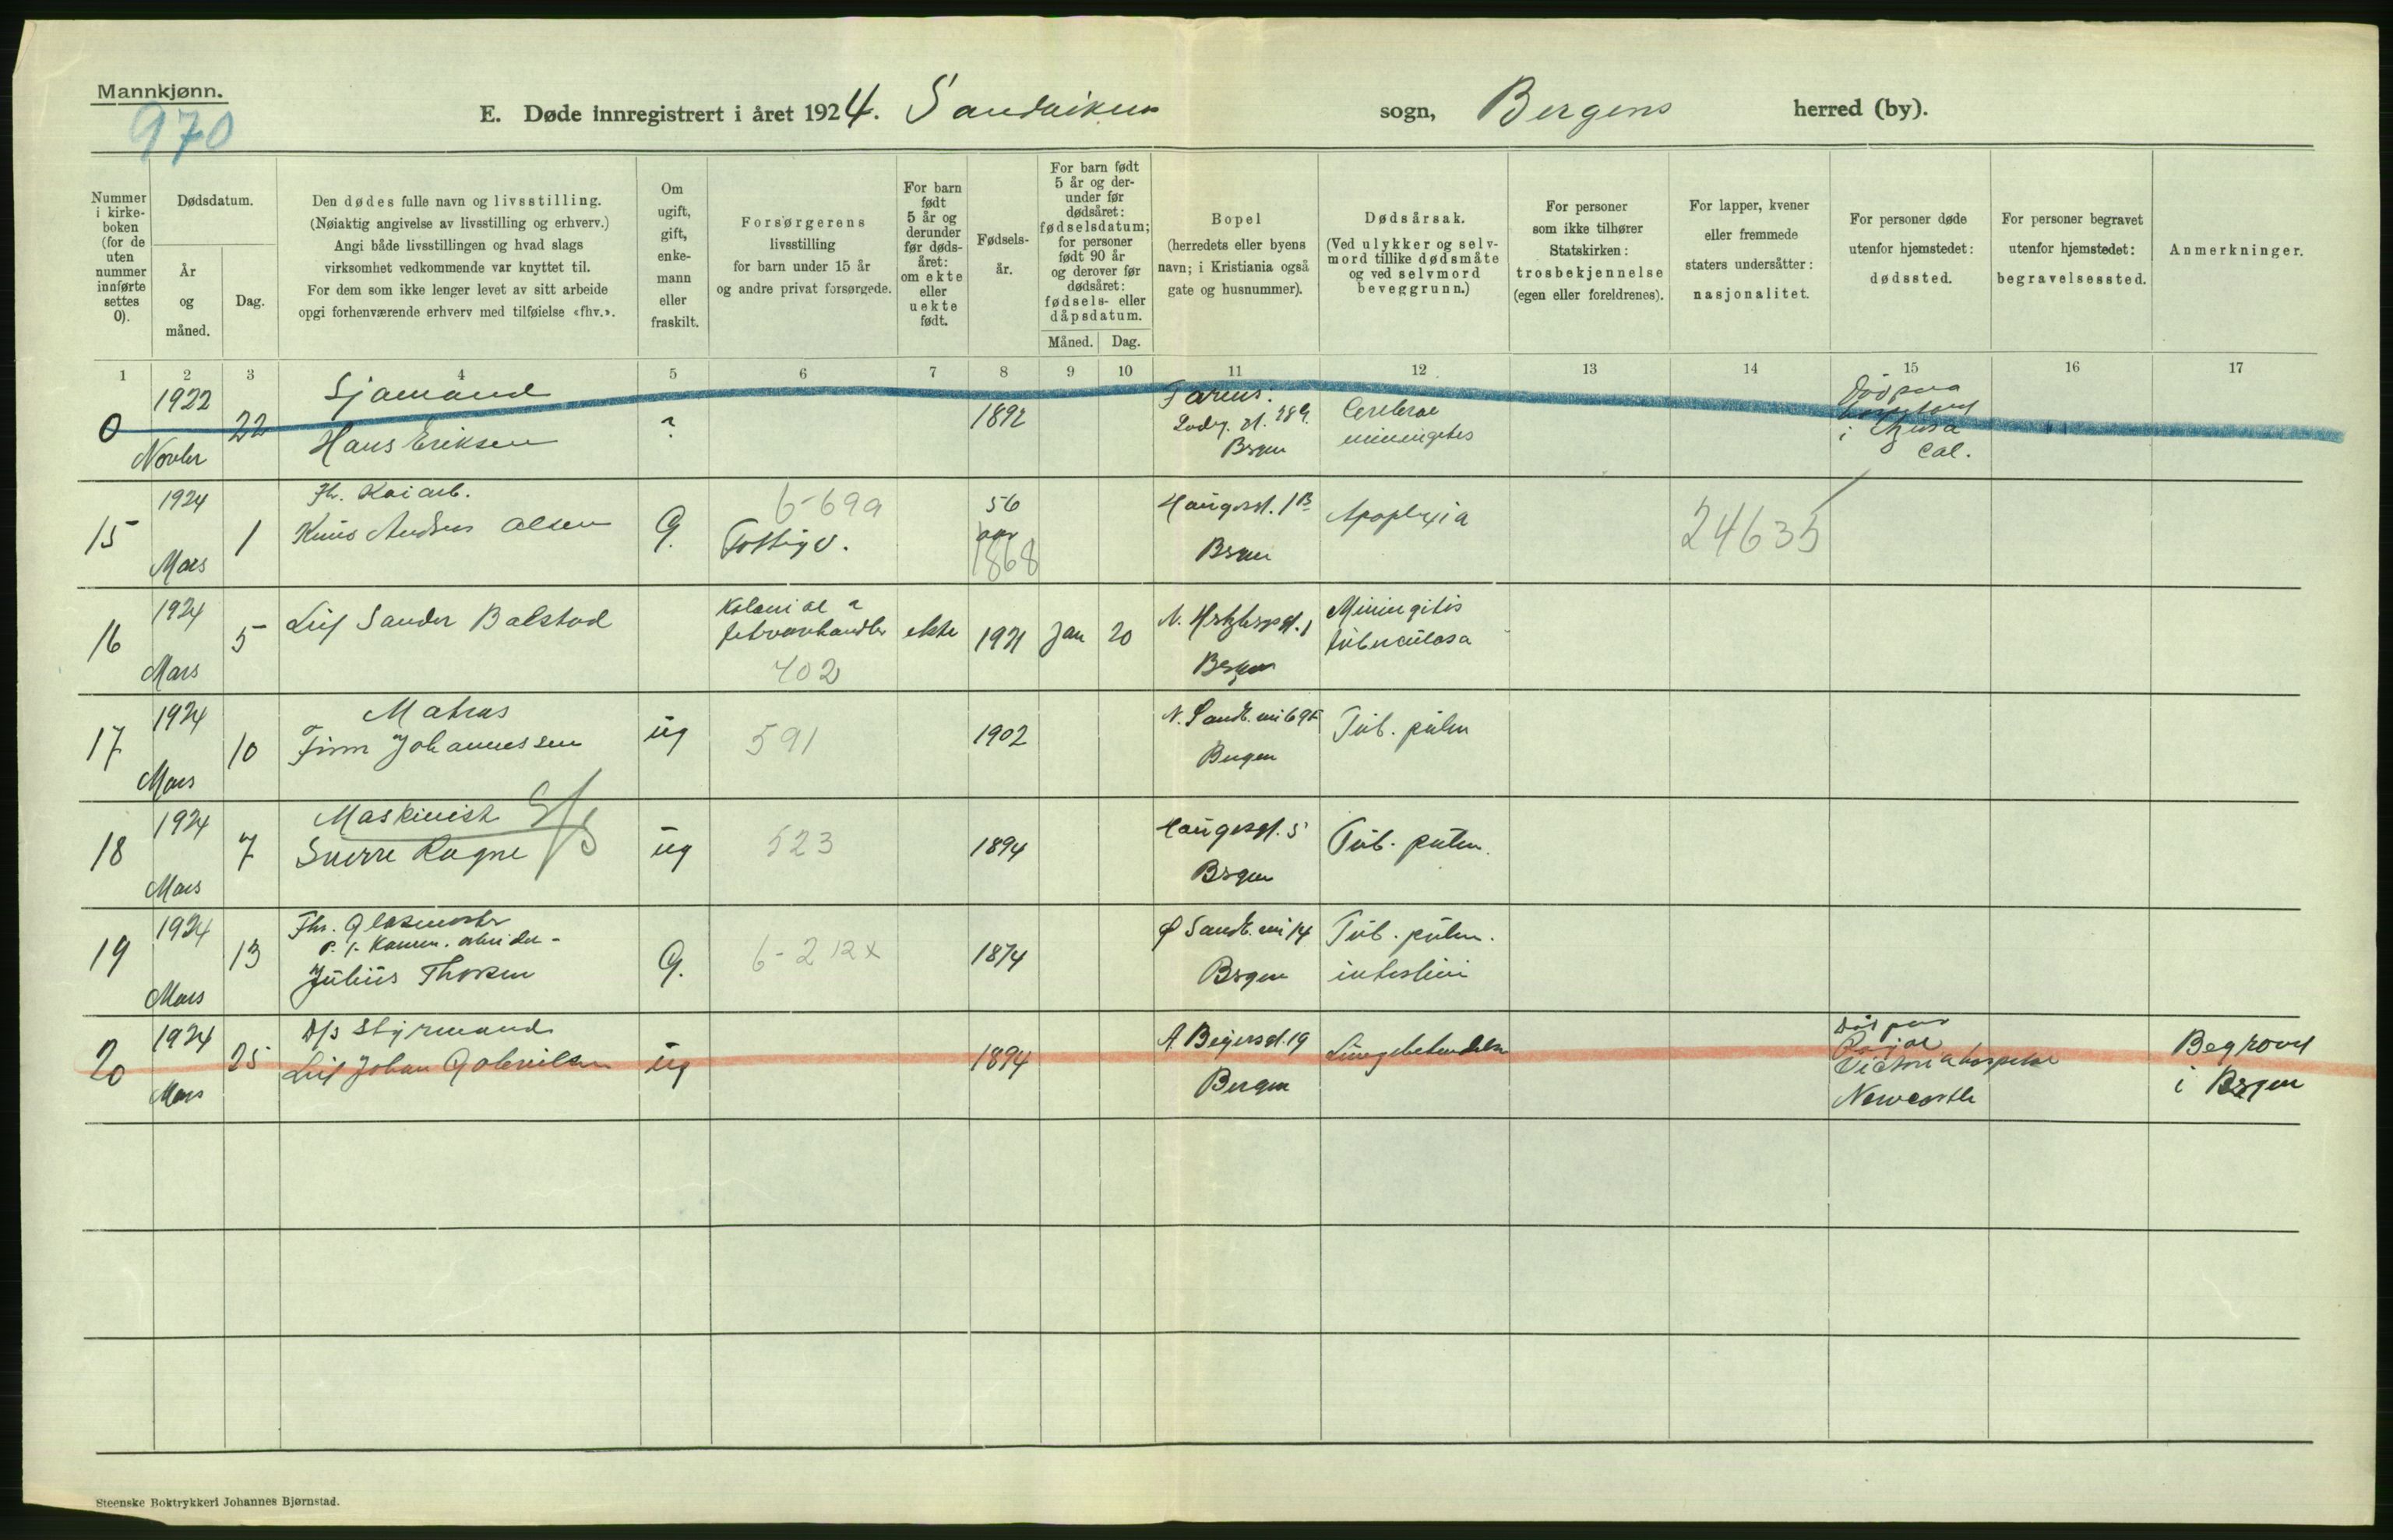 Mannkjønn.
970
E. Døde innregistrert i året 1924. Sandviken sogn, Bergens herred (by).
Nummer i kirke-boken (for de uten nummer innførte settes 0).
Dødsdatum.
År og måned.
Dag.
Den dødes fulle navn og livsstilling.
(Nøiaktig angivelse av livsstilling og erhverv.)
Angi både livsstillingen og hvad slags
virksomhet vedkommende var knyttet til.
For dem som ikke lenger levet av sitt arbeide
opgi forhenværende erhverv med tilføielse «fhv.».
Om ugift, gift, enke-mann eller fraskilt.
Forsørgerens
livsstilling
for barn under 15 år
og andre privat forsørgede.
For barn født 5 år og derunder før døds-året: om ekte eller uekte født.
Fødsels-år.
For barn født 5 år og der-under før dødsåret: fødselsdatum; for personer født 90 år og derover før dødsåret: fødsels- eller dåpsdatum.
Måned. Dag.
Bopel
(herredets eller byens
navn; i Kristiania også
gate og husnummer).
Dødsårsak.
(Ved ulykker og selv-
mord tillike dødsmåte
og ved selvmord
beveggrunn.)
For personer
som ikke tilhører
Statskirken:
trosbekjennelse
(egen eller foreldrenes).
For lapper, kvener
eller fremmede
staters undersåtter:
nasjonalitet.
For personer døde
utenfor hjemstedet:
dødssted.
For personer begravet
utenfor hjemstedet:
begravelsessted.
Anmerkninger.
1 2 3 4 5 6 7 8 9 10 11 12 13 14 15 16 17
0 1922 Novbr 22 Sjømand Hans Eriksen ? 1892 Bergen Cerebral meningites Død paa i Cal.
15 1924 Mars 1 Fh. Kaiarb. Andreas Olsen G. 6-69a Fattigv. 56 aar 1868 Haugesgt. 1B Bergen Apoplexia 24635
16 1924 Mars 5 Leif Sander Balstad Kolonial & fetvarehandler 402 ekte 1921 Jan 20 N. Hertzbergsgt. 1 Bergen Meningitis tuberculosa
17 1924 Mars 10 Matros Finn Johannessen ug 591 1902 N. Sandv. vei 69 Bergen Tub. pulm
18 1924 Mars 7 Maskinist Sverre Ragne ug 523 1894 Haugesgt. 5 Bergen Tub. pulm.
19 1924 Mars 13 Fhv. Glasmester Julius Thorsen G. 6-212x 1874 Ø Sandv. vei 14 Bergen Tub. pulm. intestini
20 1924 Mars 25 D/S Styrmand Leif Johan Gabrielsen ug 1894 A. Beyersgt. 19 Bergen Lungebetendelse Død paa Rojal Victoria hospital Newcastle Begravet i Bergen
Steenske Boktrykkeri Johannes Bjørnstad.